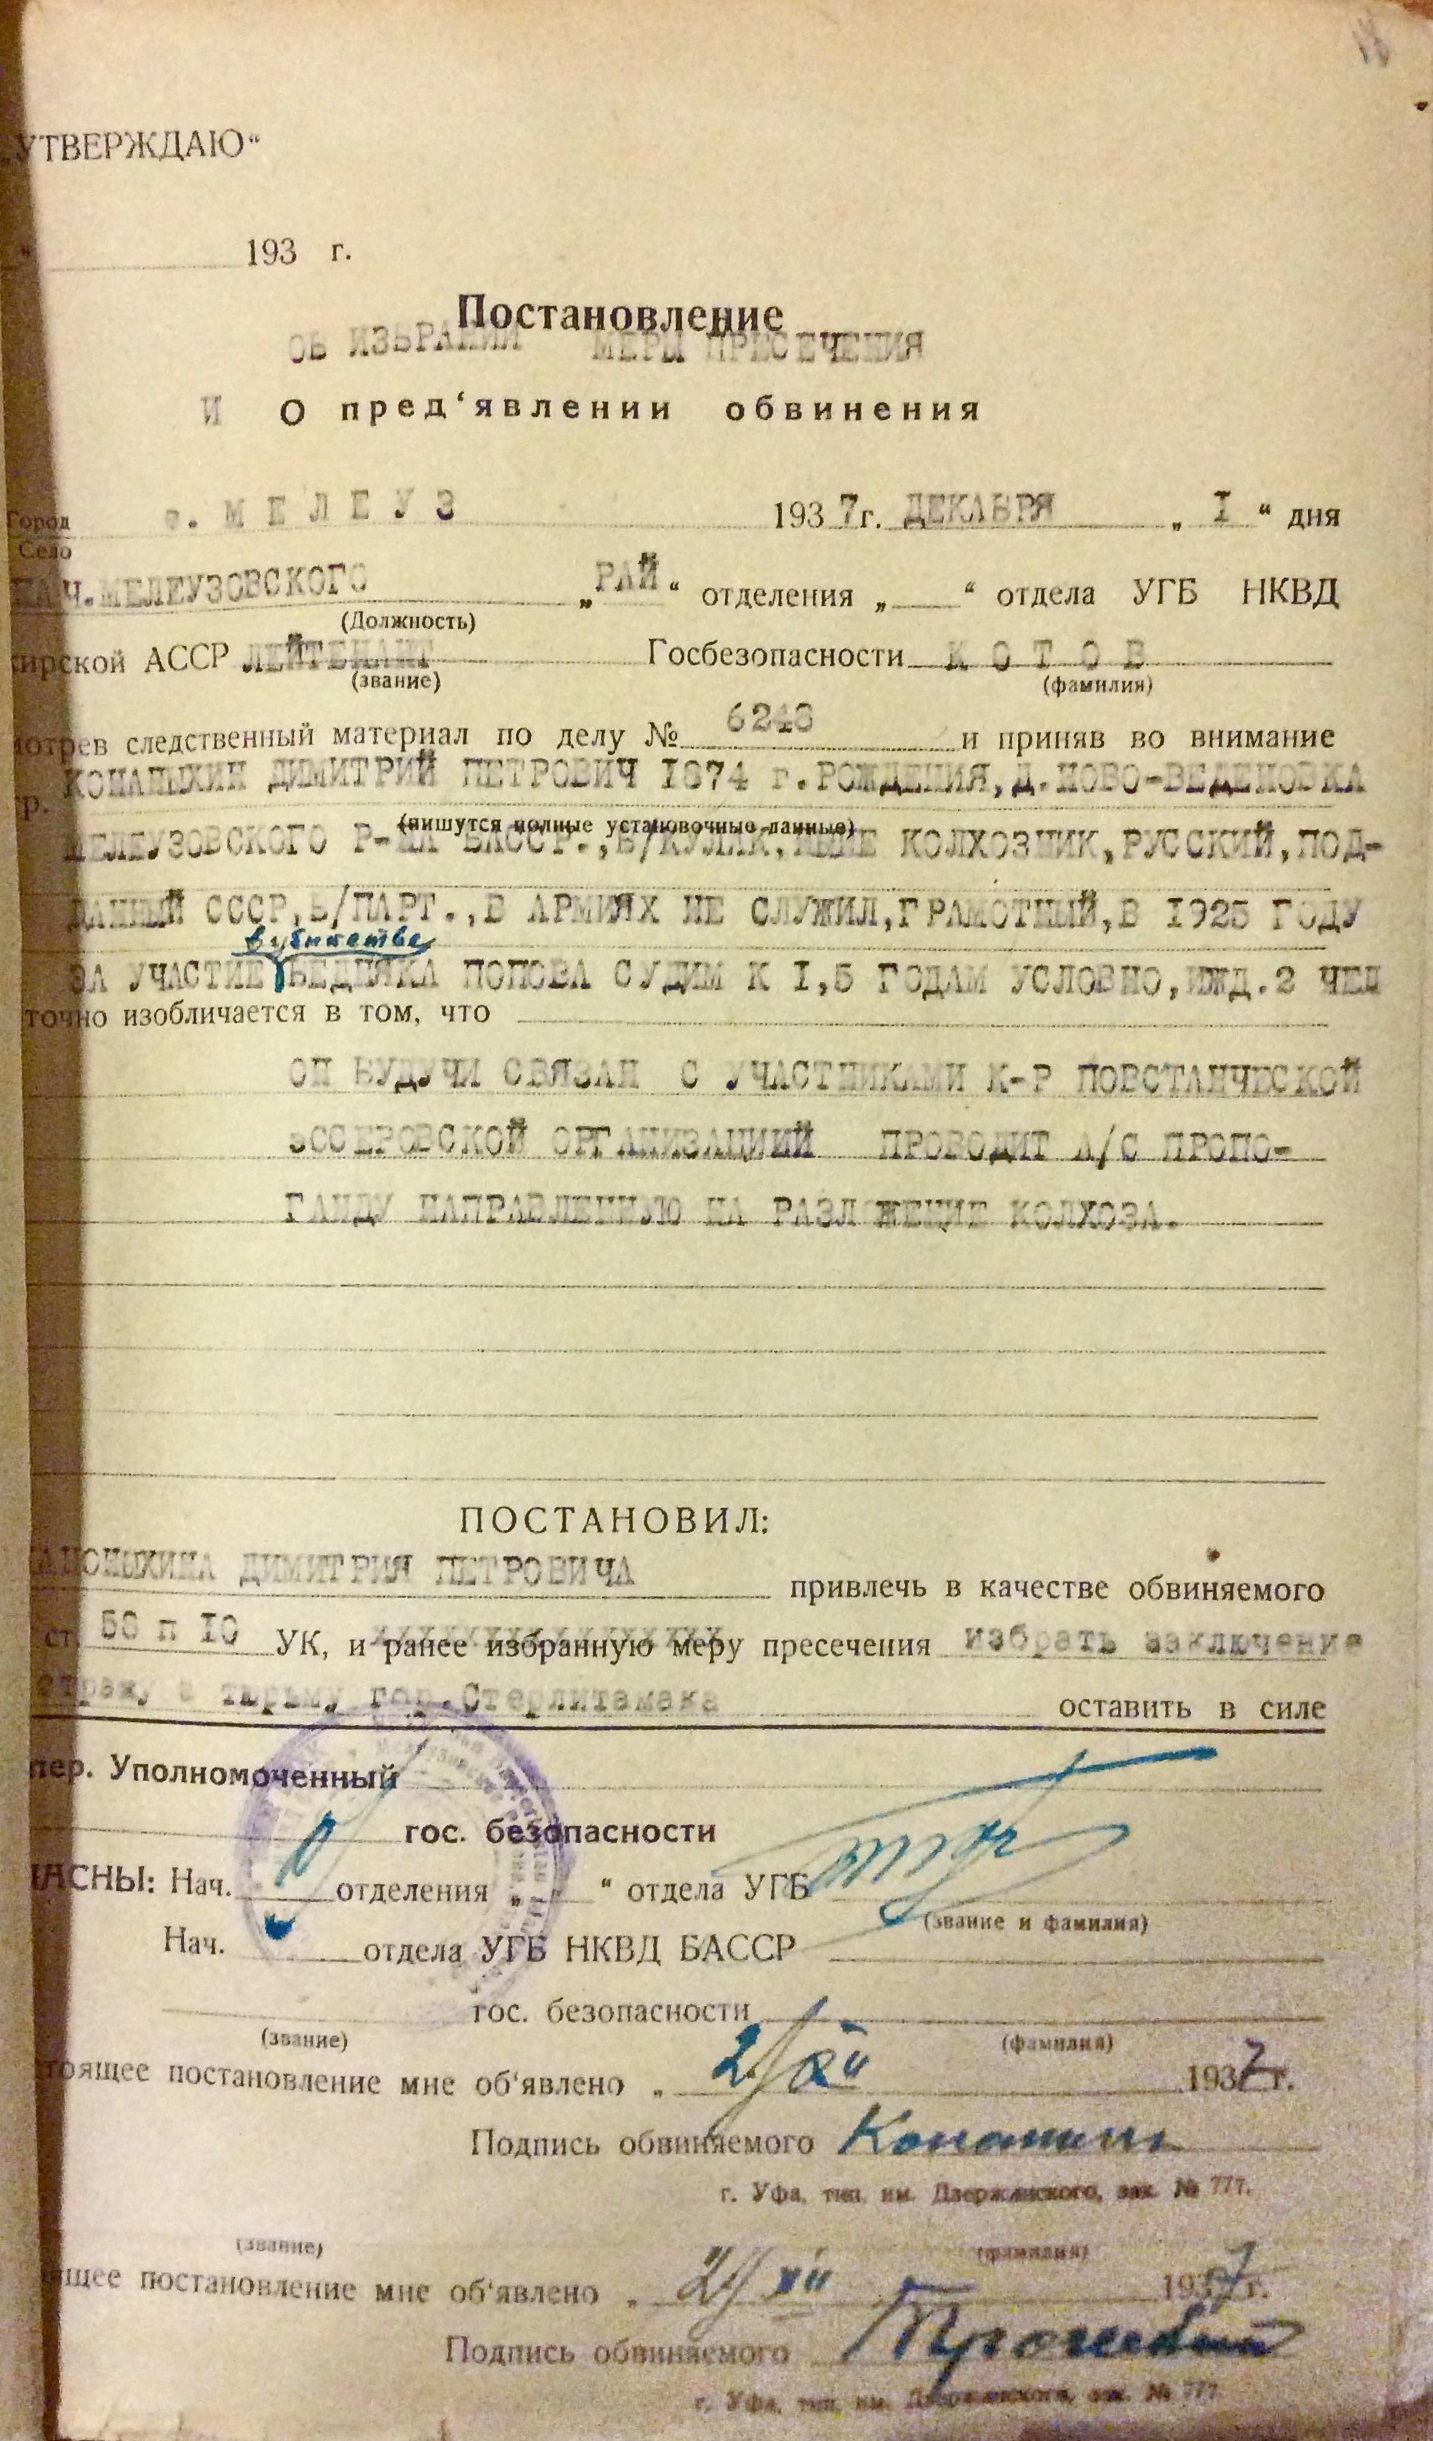 УТВЕРЖДАЮ“
193 г.
Постановление
ОБ ИЗБРАНИИ МЕРЫ ПРЕСЕЧЕНИЯ
И О пред‘явлении обвинения
Город
Село
с. МЕЛЕУЗ 193 7 г. ДЕКАБРЯ „ I “ дня
НАЧ.МЕЛЕУЗОВСКОГО „РАЙ“ отделения „ “ отдела УГБ НКВД
(Должность)
кирской АССР ЛЕЙТЕНАНТ Госбезопасности КОТОВ
(звание) (фамилия)
мотрев следственный материал по делу № 6248 и приняв во внимание
гр. КОНАПЫХИН ДИМИТРИЙ ПЕТРОВИЧ 1874 г.РОЖДЕНИЯ,Д.НОВО-ВЕДЕНОВКА
(пишутся полные установочные данные)
МЕЛЕУЗОВСКОГО Р-НА БАССР.,Б/КУЛАК,НЫНЕ КОЛХОЗНИК,РУССКИЙ,ПОД-
ДАННЫЙ СССР,Б/ПАРТ.,В АРМИЯХ НЕ СЛУЖИЛ,ГРАМОТНЫЙ,В 1925 ГОДУ
в убийстве
ЗА УЧАСТИЕ БЕДНЯКА ПОПОВА СУДИМ К 1,5 ГОДАМ УСЛОВНО,ИЖД.2 ЧЕЛ
точно изобличается в том, что
ОН БУДУЧИ СВЯЗАН С УЧАСТНИКАМИ К-Р ПОВСТАНЧЕСКОЙ
ЭССЕРОВСКОЙ ОРГАНИЗАЦИИЙ ПРОВОДИТ А/С ПРОПО-
ГАНДУ НАПРАВЛЕННУЮ НА РАЗЛ ЖЕНИЕ КОЛХОЗА.
ПОСТАНОВИЛ:
АПОНЫХИНА ДИМИТРИЯ ПЕТРОВИЧА привлечь в качестве обвиняемого
ст. 58 п 10 УК, и ранее избранную меру пресечения избрать заключение
стражу в тюрьму гор.Стерлитамака оставить в силе
пер. Уполномоченный
гос. безопасности
ЛАСНЫ: Нач. отделения „ “ отдела УГБ
(звание и фамилия)
Нач. отдела УГБ НКВД БАССР
гос. безопасности
(звание) (фамилия)
тоящее постановление мне об‘явлено „ 2/XII 1937 г.
Подпись обвиняемого
г. Уфа, тип. им. Дзержинского, зак. № 777.
(звание) (фамилия)
ящее постановление мне об‘явлено „ 2/XII 1937 г.
Подпись обвиняемого
г. Уфа, тип. им. Дзержинского, зак. № 777